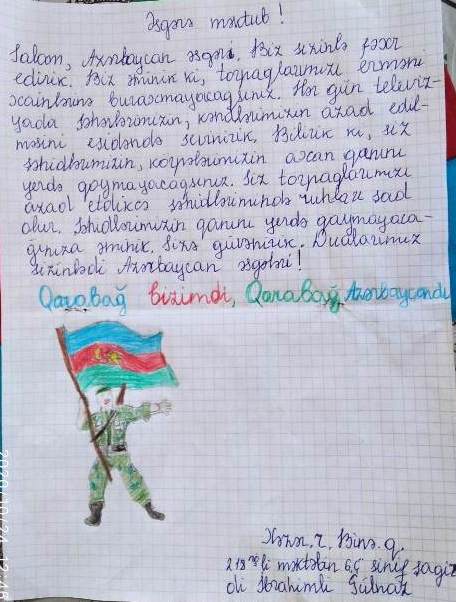 Əsgərə məktub!
Salam, Azərbaycan əsgəri. Biz sizinlə fəxr
edirik. Biz əminik ki, torpaqlarımızı erməni
əcainlərinə buraxmayacaqsınız. Hər gün televiz-
yada şəhərlərimizin, kəndlərimizin azad edil-
məsini eşidəndə sevinirik. Bilirik ki, siz
şəhidlərimizin, körpələrimizin axan qanını
yerdə qoymayacaqsınız. Siz torpaqlarımızı
azad etdikcə şəhidlərimizində ruhları şad
olur. Şəhidlərimizin qanını yerdə qaymayaca-
ğınıza əminik. Sizə güvənirik. Dualarımız
sizinlədi Azərbaycan əsgəri!
Qarabağ bizimdi, Qarabağ Azərbaycandı
Xəzər. r, Binə. q.
218 №li məktəbin 6 ç sinif şagir
di İbrahimli Gülnaz
2020/10/24